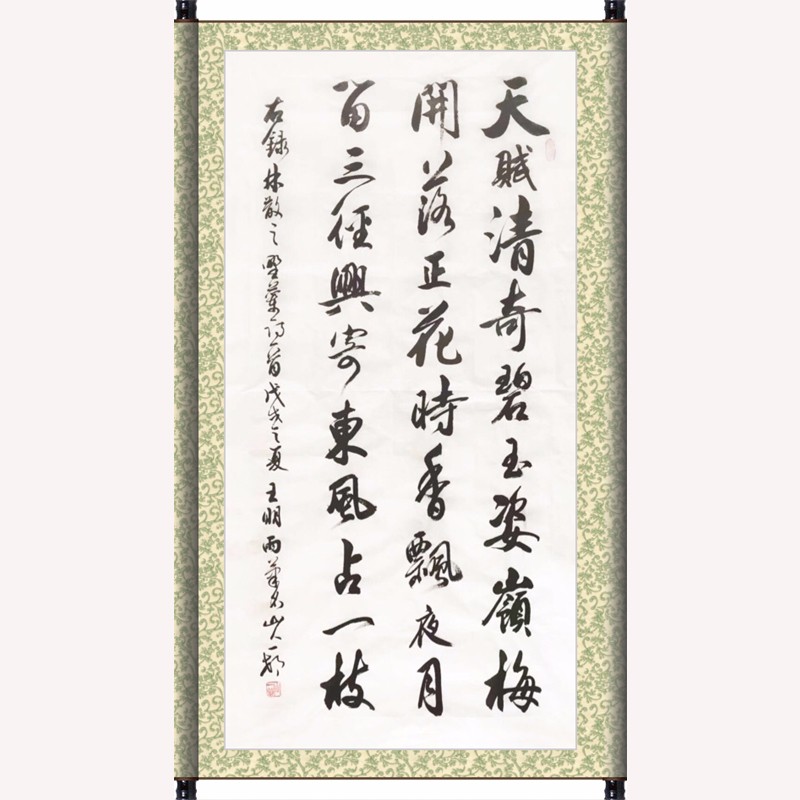 天賦清奇碧玉姿嶺梅
開落正花時香飄夜月
留三徑興寄東風占一枝
右録林散之野蘭詩一首戊戌之夏王明雨